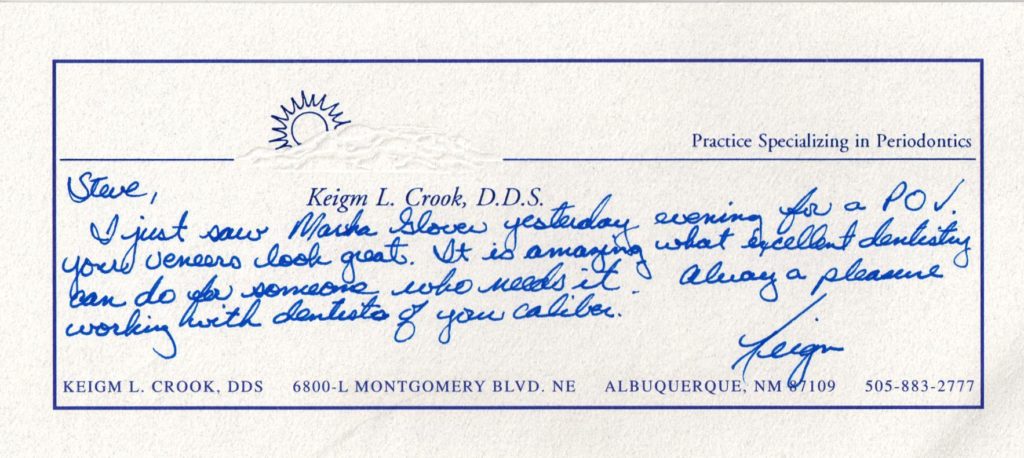 Practice Specializing in Periodontics
Keigm L. Crook, D.D.S.
Steve,
I just saw Marsha Glover yesterday evening for a POV.
your veneers look great. It is amazing what excellent dentistry
can do for someone who needs it. Alway a pleasure
working with dentists of your caliber.
Keigm
KEIGM L. CROOK, DDS 6800-L MONTGOMERY BLVD. NE ALBUQUERQUE, NM 87109 505-883-2777